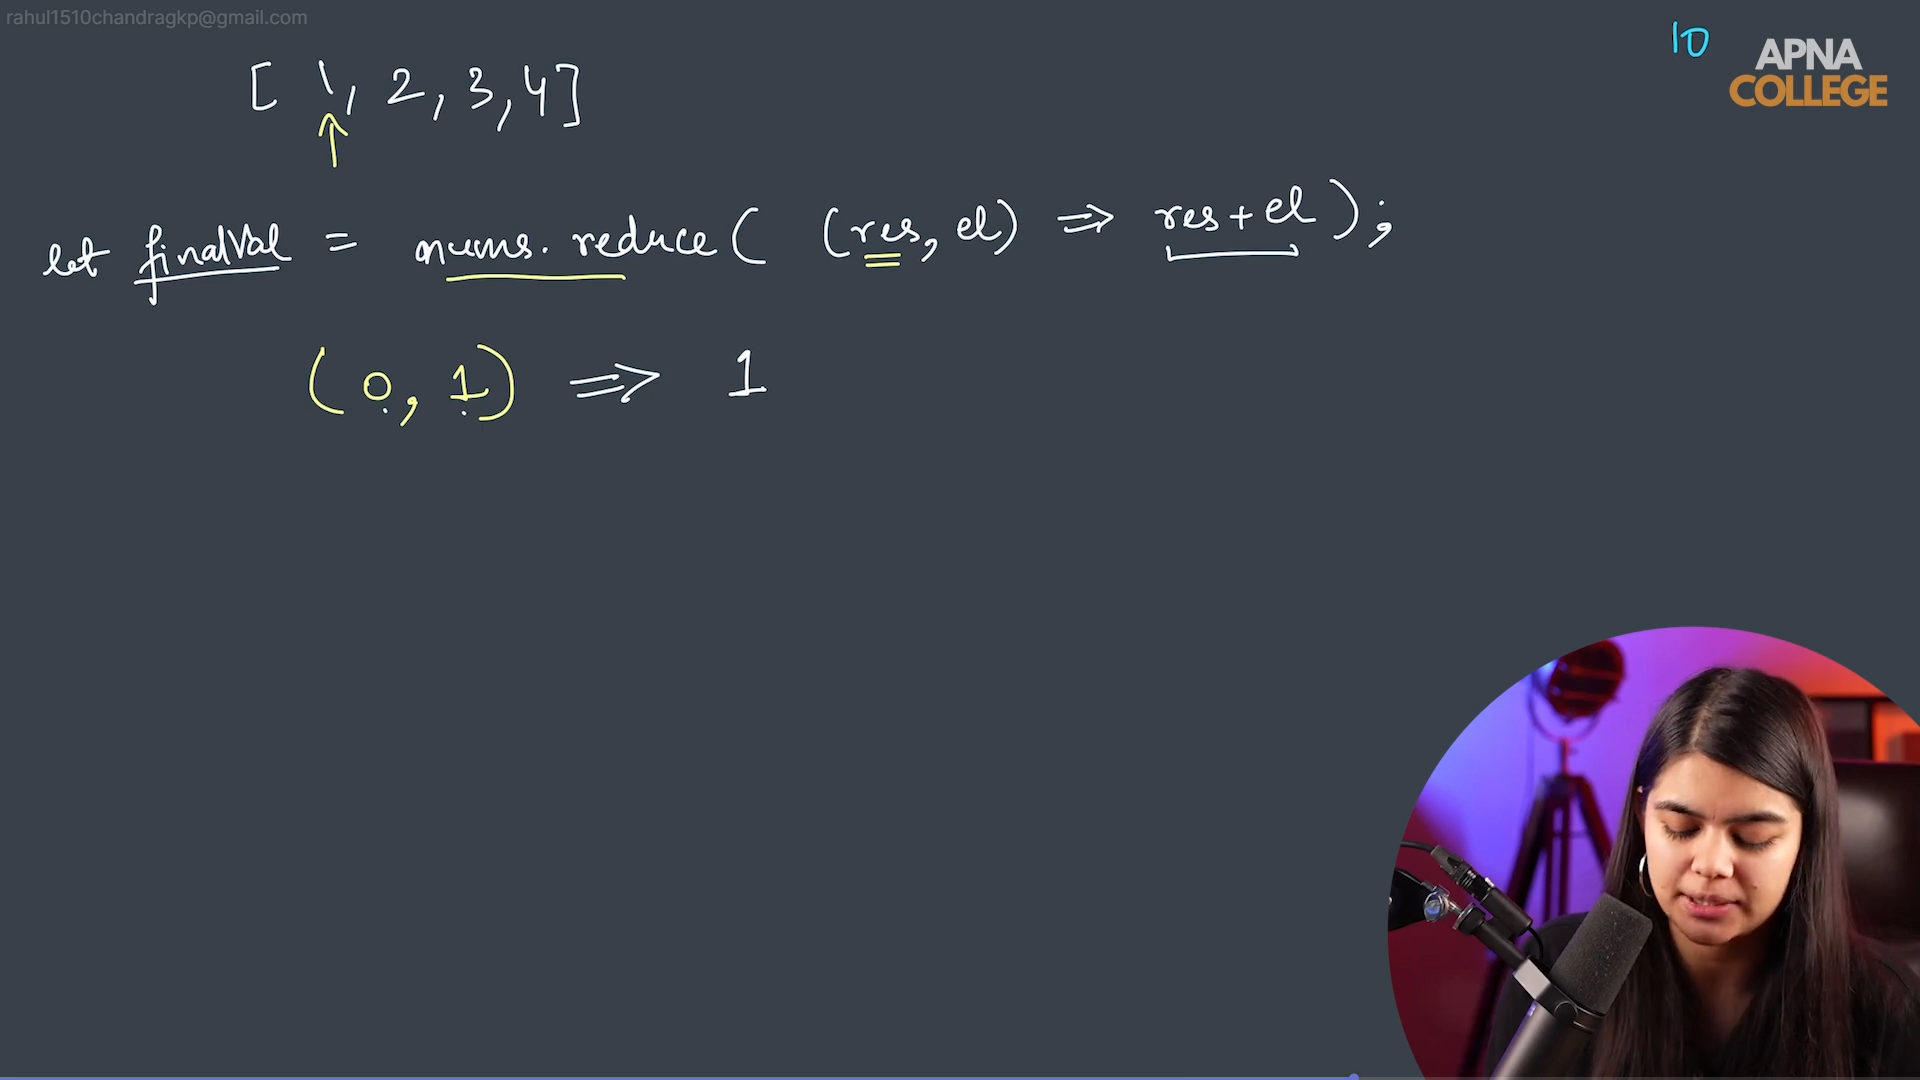 rahul1510chandragkp@gmail.com
10
APNA
COLLEGE
[ 1, 2, 3, 4 ]
let finalVal = nums. reduce ( (res, el) => res + el ) ;
(0, 1) => 1